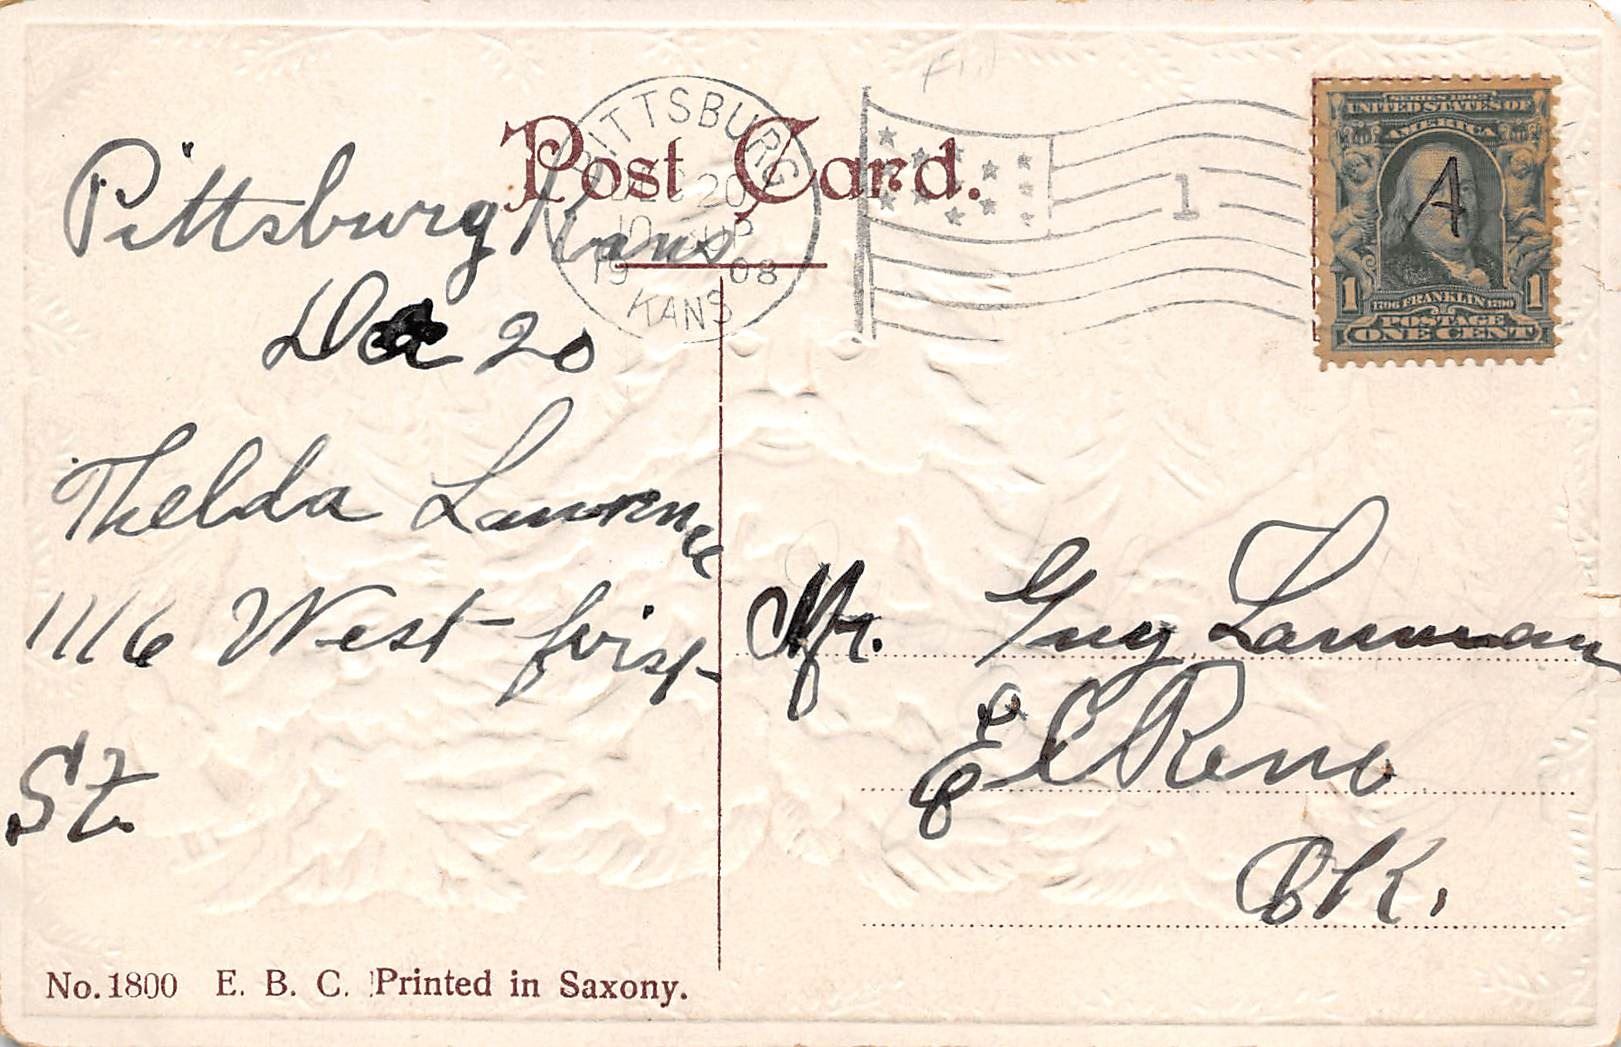 Post Card.
PITTSBURG
DEC 20
10
1908
KANS
1
SERIES 1902
UNITED STATES OF
AMERICA
A
1 1706 FRANKLIN 1790 1
POSTAGE
ONE CENT
Pittsburg Kans
Dec 20
Thelda Lawrence
1116 West first
St.
Mr. Guy Lamman
El Reno
OK.
No. 1800 E. B. C. Printed in Saxony.